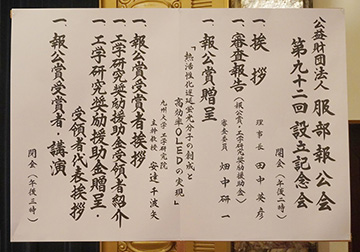 公益財団法人 服部報公会
第九十二回 設立記念会
開会(午後二時)
一、挨拶
理事長 田中英彦
一、審査報告(報公賞・工学研究奨励援助金)
審査委員 畑中研一
一、報公賞贈呈
「熱活性化遅延蛍光分子の創成と
高効率OLEDの実現」
九州大学 工学研究院
主幹教授 安達千波矢
一、報公賞受賞者挨拶
一、工学研究奨励援助金受領者紹介
一、工学研究奨励援助金贈呈・
受領者代表挨拶
一、報公賞受賞者・講演
閉会(午後三時)